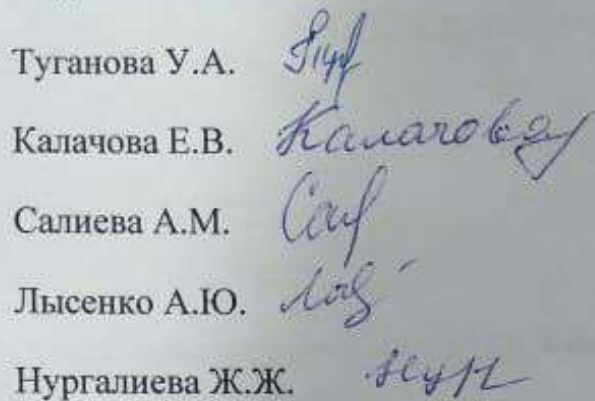 Туганова У.А.
Калачова Е.В. Калачова
Салиева А.М.
Лысенко А.Ю.
Нургалиева Ж.Ж.